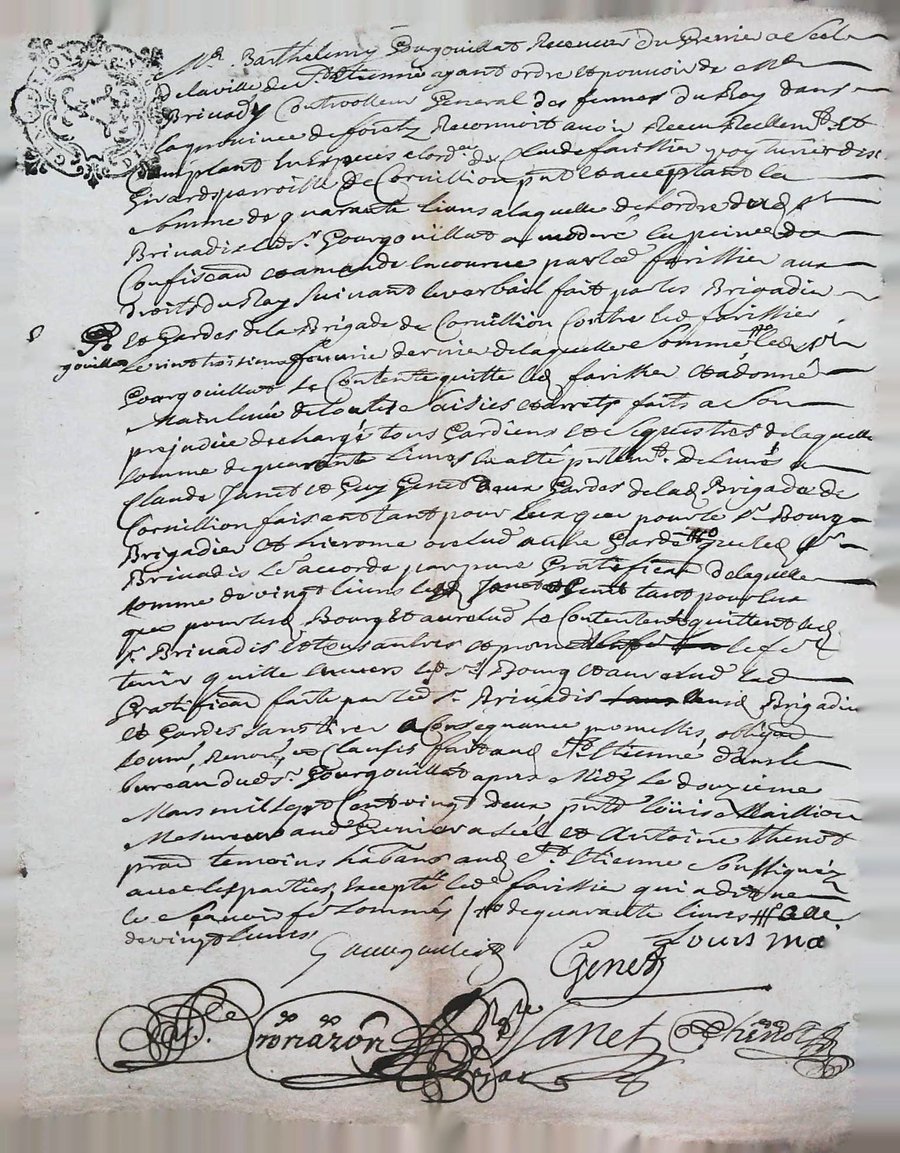 Mr. Barthelemy Gourgouillat Receveur Du Grenier a Sel
De laville de St. Etienne ayant ordre et pouvoir de Mr
Brivadis Controolleur General des fermes Du Roy dans
laprovince deforetz Reconnoit avoir Receu Reellemt. Et
Comptant En Especes elordre de Claude farillier
Girard parroisse De Cornillion pnt. et acceptant la
Somme de quarante livres alaquelle delordre dud. Sr.
Brivadis led. Sr. Gourgouillat a moderé la peine De
Confiscaon etamande Encourue par led. farillier aux
Droits du Roy Suivant leverbail fait par les Brigadier
Et Gardes dela Brigade de Cornillion Contre led. farillier
Le vint troisieme fevrier dernier delaquelle Somme led. Sr.
Gourgouillat Se Contente quitte led. farillier etadonné
Mainlevée detoutes Saisies etarrets faits a Son
prejudice decharge tous Gardiens et Sequestres delaquelle
Somme dequarante Livres En a eté pntemt. Delivré a
Claude Janet et Guy Genet deux Gardes delad. Brigade de
Cornillion faisant tant pour Eux que pour le Sr. Bourg
Brigadier Et hierome autre Garde que led. Sr.
Brivadis Leur accorde par pure Gratificaon delaquelle
Somme devingt livres led. Janet et Genet tant pour Eux
que pour led. Bourg Et Se Contentent quittent led.
Sr. Brivadis Et tous autres et prom le fe
tenir quitte Envers led. Sr. Bourg et led.
Gratificaon faite par led. Sr. Brivadis Brigadier
Et Gardes Sans tirer a Consequance promettis, obligaon
Soumn., Renonn., et Clausis fait aud. St. Etienne dans le
bureau dud. Sr. Gourgouillat apres Midy le douzieme
Mars mil Sept Cent vingt deux pnts. Louis Maillion
Mesureur aud. Grenier a Sel et Antoine Thenot
pratn. temoins habans aud. St. Etienne Soussignéz
avec lesparties, Excepté led. farillier qui a dit ne
le Scavoir fe Sommés / dequarante livres
devingt livres
Gourgouillat
Genet
Louis ma
Janet
Thenot